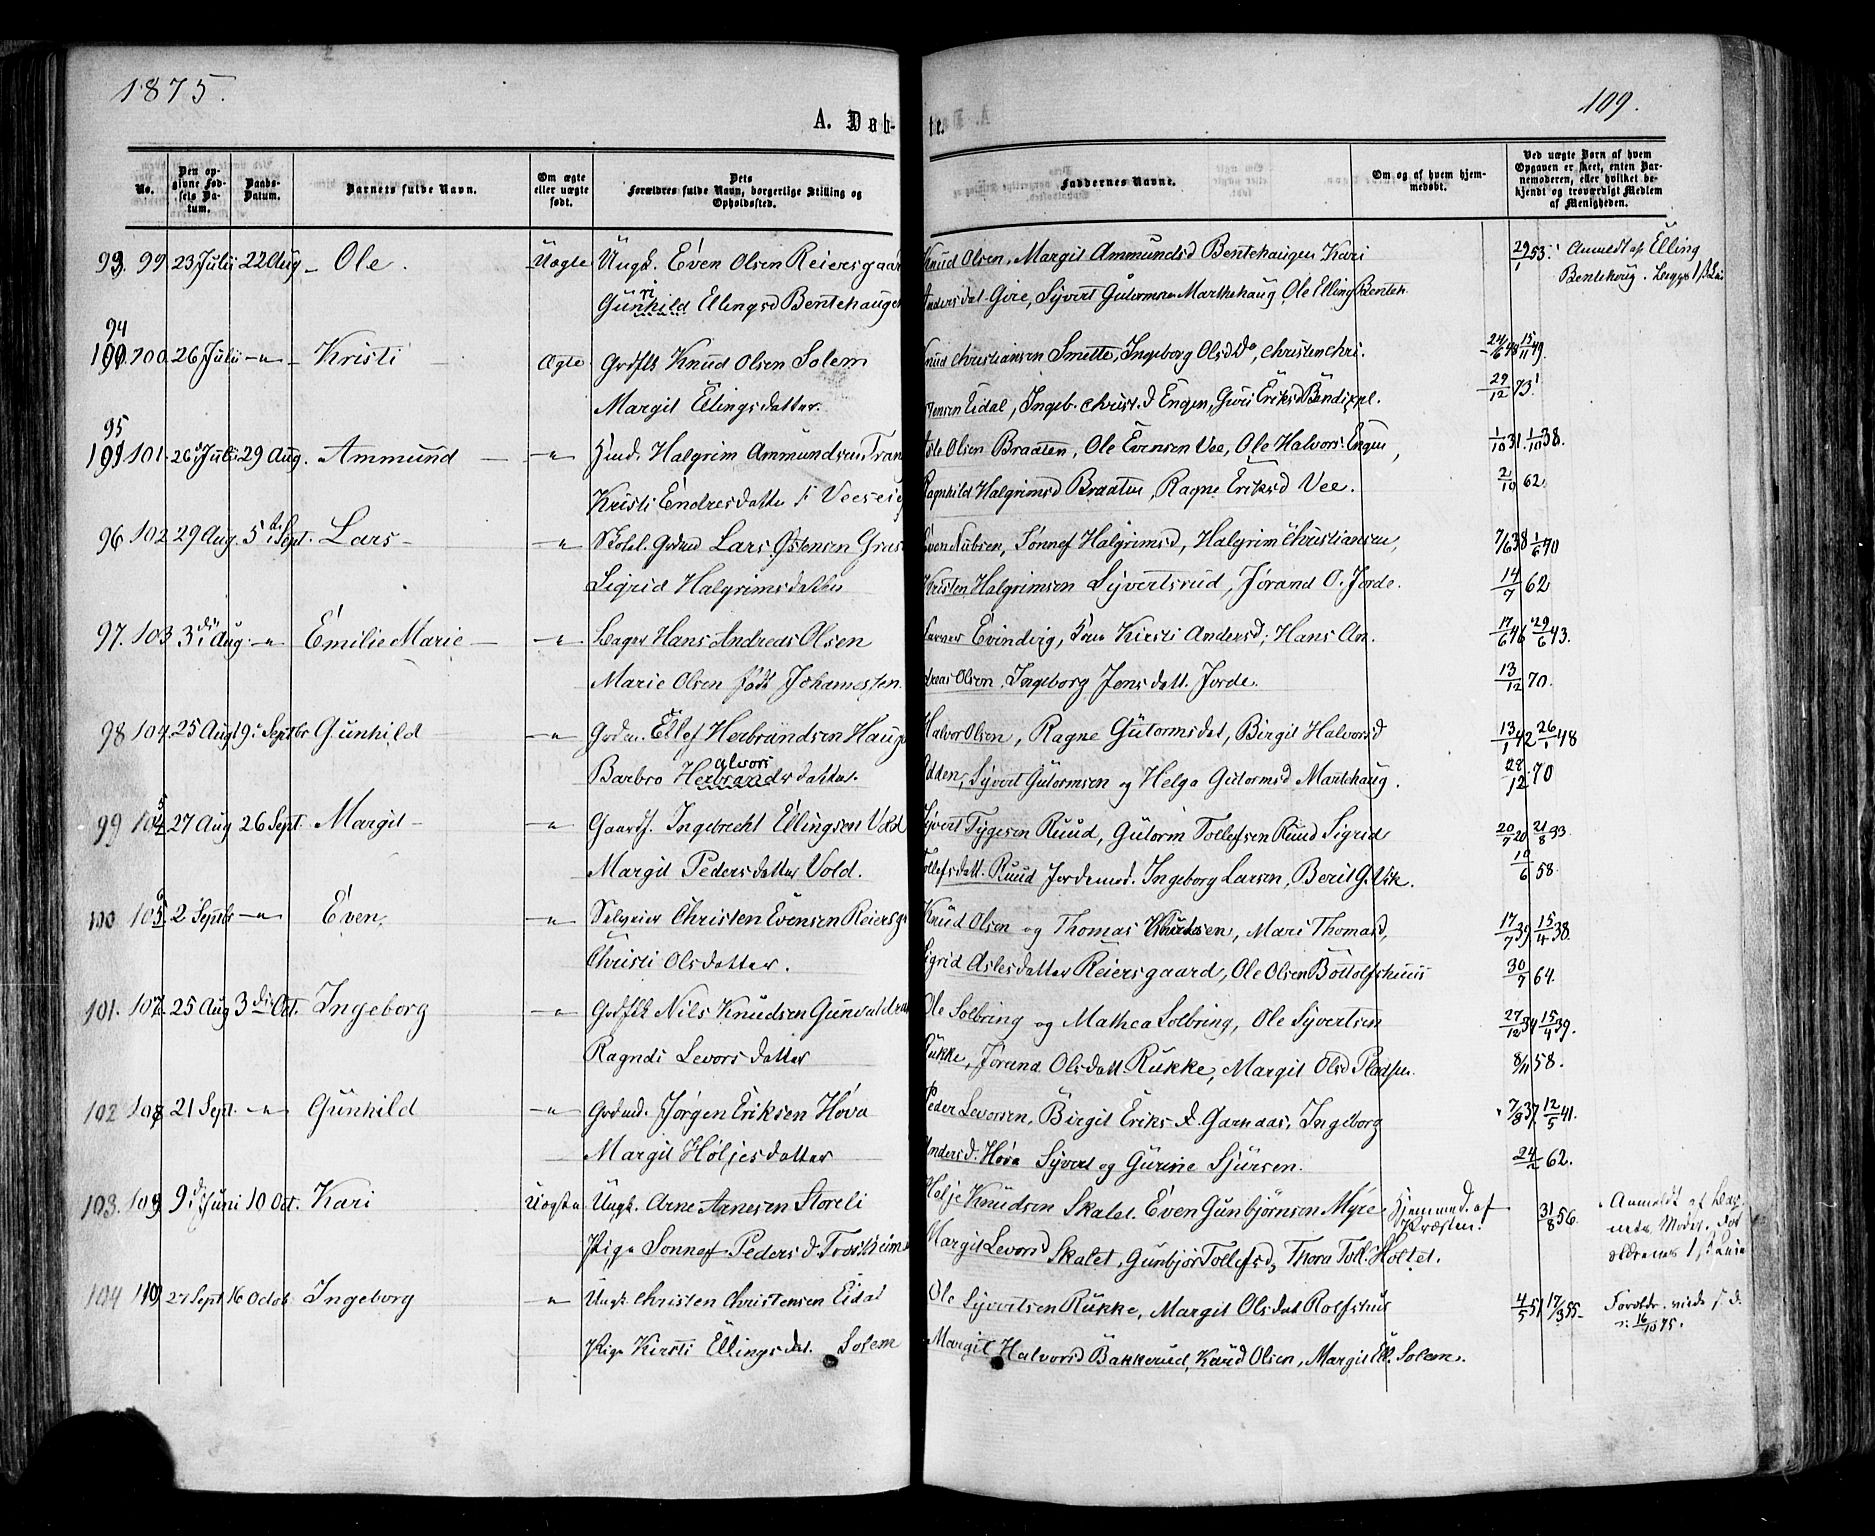 1875.
109.
A. Døb-
te.
No.
Den op-
givne Fød-
sels Da-
tum.
Daabs-
Datum.
Barnets fulde Navn.
Om ægte
eller uægte
født.
Dets
Forældres fulde Navn, borgerlige Stilling og
Opholdssted.
Faddernes Navne.
Om og af hvem hjem-
medøbt.
Ved uægte Børn af hvem
Opgaven er skeet, enten Bar-
nemoderen, eller hvilket be-
kjendt og troværdigt Medlem
af Menigheden.
93. 99 23 Juli 22 Aug Ole. Uægte Ungk. Even Olsen Reiersgaar Knud Olsen, Margit Ammundsd Bentehaugen Kari 29/1 53. Anmeldt af Elling
Gunhild ri Ellingsd Bentehaugen Andersdat Gire, Syvert Gutormsen Marthehaug Ole Elling Benteh. Bentehaug.
94
100 26 Juli -"- Kristi Ægte Grdfk Knud Olsen Solem Knud Christiansen Smette, Ingeborg Olsd Do, Christen Chri. 24/6 48 15/11 49.
Margit Ellingsdatter. stensen Eidal, Ingeb. Christ.d Engen, Guri Eriksd 29/12 73
95
101 26 Juli 29 Aug. Ammund -"- Hmd. Halgrim Ammundsen Asle Olsen Braaten, Ole Evensen Vee, Ole Halvors. Engen, 1/10 31. 1/10 38.
Kristi Endresdatter Ragnhild Halgrimsd Braaten, Ragne Eriksd Vee. 2/10 62.
96 102 29 Aug. 5 Sept. Lars -"- Grdmd Lars Østensen Even Nubsen, Sønnef Halgrimsd, Halgrim Christiansen, 7/6 38 1/6 70
Sigrid Halgrimsdatter Kristen Halgrimsen Syvertsrud, Jørand O. Jorde. 14/7 62
97. 103 3 Aug. -"- Emilie Marie -"- Hans Andreas Olsen Evindvig, Kirsti Andersd, Hans An. 17/6 46 29/6 43.
Marie Olsen født Johannesen. dreas Olsen, Ingeborg Jensdatt. Jorde. 13/12 70.
98 104 25 Aug 19 Septbr Gunhild -"- Grdm. Ellef Herbrandsen Haug Halvor Olsen, Ragne Gutormsdat, Birgit Halvorsd 13/1 42 26/1 48
Barbro Herbrandsdatter. alvors Syvert Gutormsen og Helga Gutormsd Martehaug. 28/12 70
99 105 27 Aug 26 Sept. Margit -"- Gaardf. Ingebrecht Ellingsen Vold Syvert Tygesen Ruud, Gutorm Tollefsen Ruud Sigrid 20/7 20 21/8 33
Margit Pedersdatter Vold. Tollefsdatt. Ruud Jordemod. Ingeborg Larsen, Berit G. Vik. 10/6 58.
100 106 2 Septbr -"- Even. -"- Selveier Christen Evensen Reiersg Knud Olsen og Thomas Knudsen, Mari Thomasd, 17/7 39 15/4 38.
Christi Olsdatter. Sigrid Aslesdatter Reiersgaard, Ole Olsen Bottolfshuus 30/7 64.
101. 107 25 Aug 3 Oct. Ingeborg -"- Grdfk Nils Knudsen Ole Solbring og Mathea Solbring, Ole Syvertsen 27/12 34 15/4 39.
Ragndi Levorsdatter Rukke, Jørand Olsdatt. Rukke, Margit Olsd Pladsen 8/11 58.
102 108 21 Sept. -"- Gunhild -"- Grdmd. Jørgen Eriksen Hova Peder Levorsen, Birgit Eriksd. Garnaas, Ingeborg 7/8 37 12/5 41.
Margit Høljesdatter Andersd. Hova Syvert og Gurine Sjursen. 24/2 62.
103. 109 9 Juni 10 Oct. Kari Uægte Ungk. Arne Arnesen Storeli Holje Knudsen Skalet. Even Gunbjørnsen Myre Hjemmed. af 31/8 56. Anmeldt af
Præsten.
Pige Sonnef Pedersd. Trostheim Margit Levorsd Skalet, Gunbjør Tollefsd, Thora Toll. Holtet.
104 110 27 Sept 16 Octob. Ingeborg -"- Ungk. Christen Christensen Eidal Ole Syvertsen Rukke, Margit Olsdat Rolfshus 4/5 51 17/3 55 Foreldr. viede
16/10 75.
Pige Kirsti Ellingsdat. Solem Margit Halvorsd Bakkerud, Knud Olsen, Margit Ell. Solem.